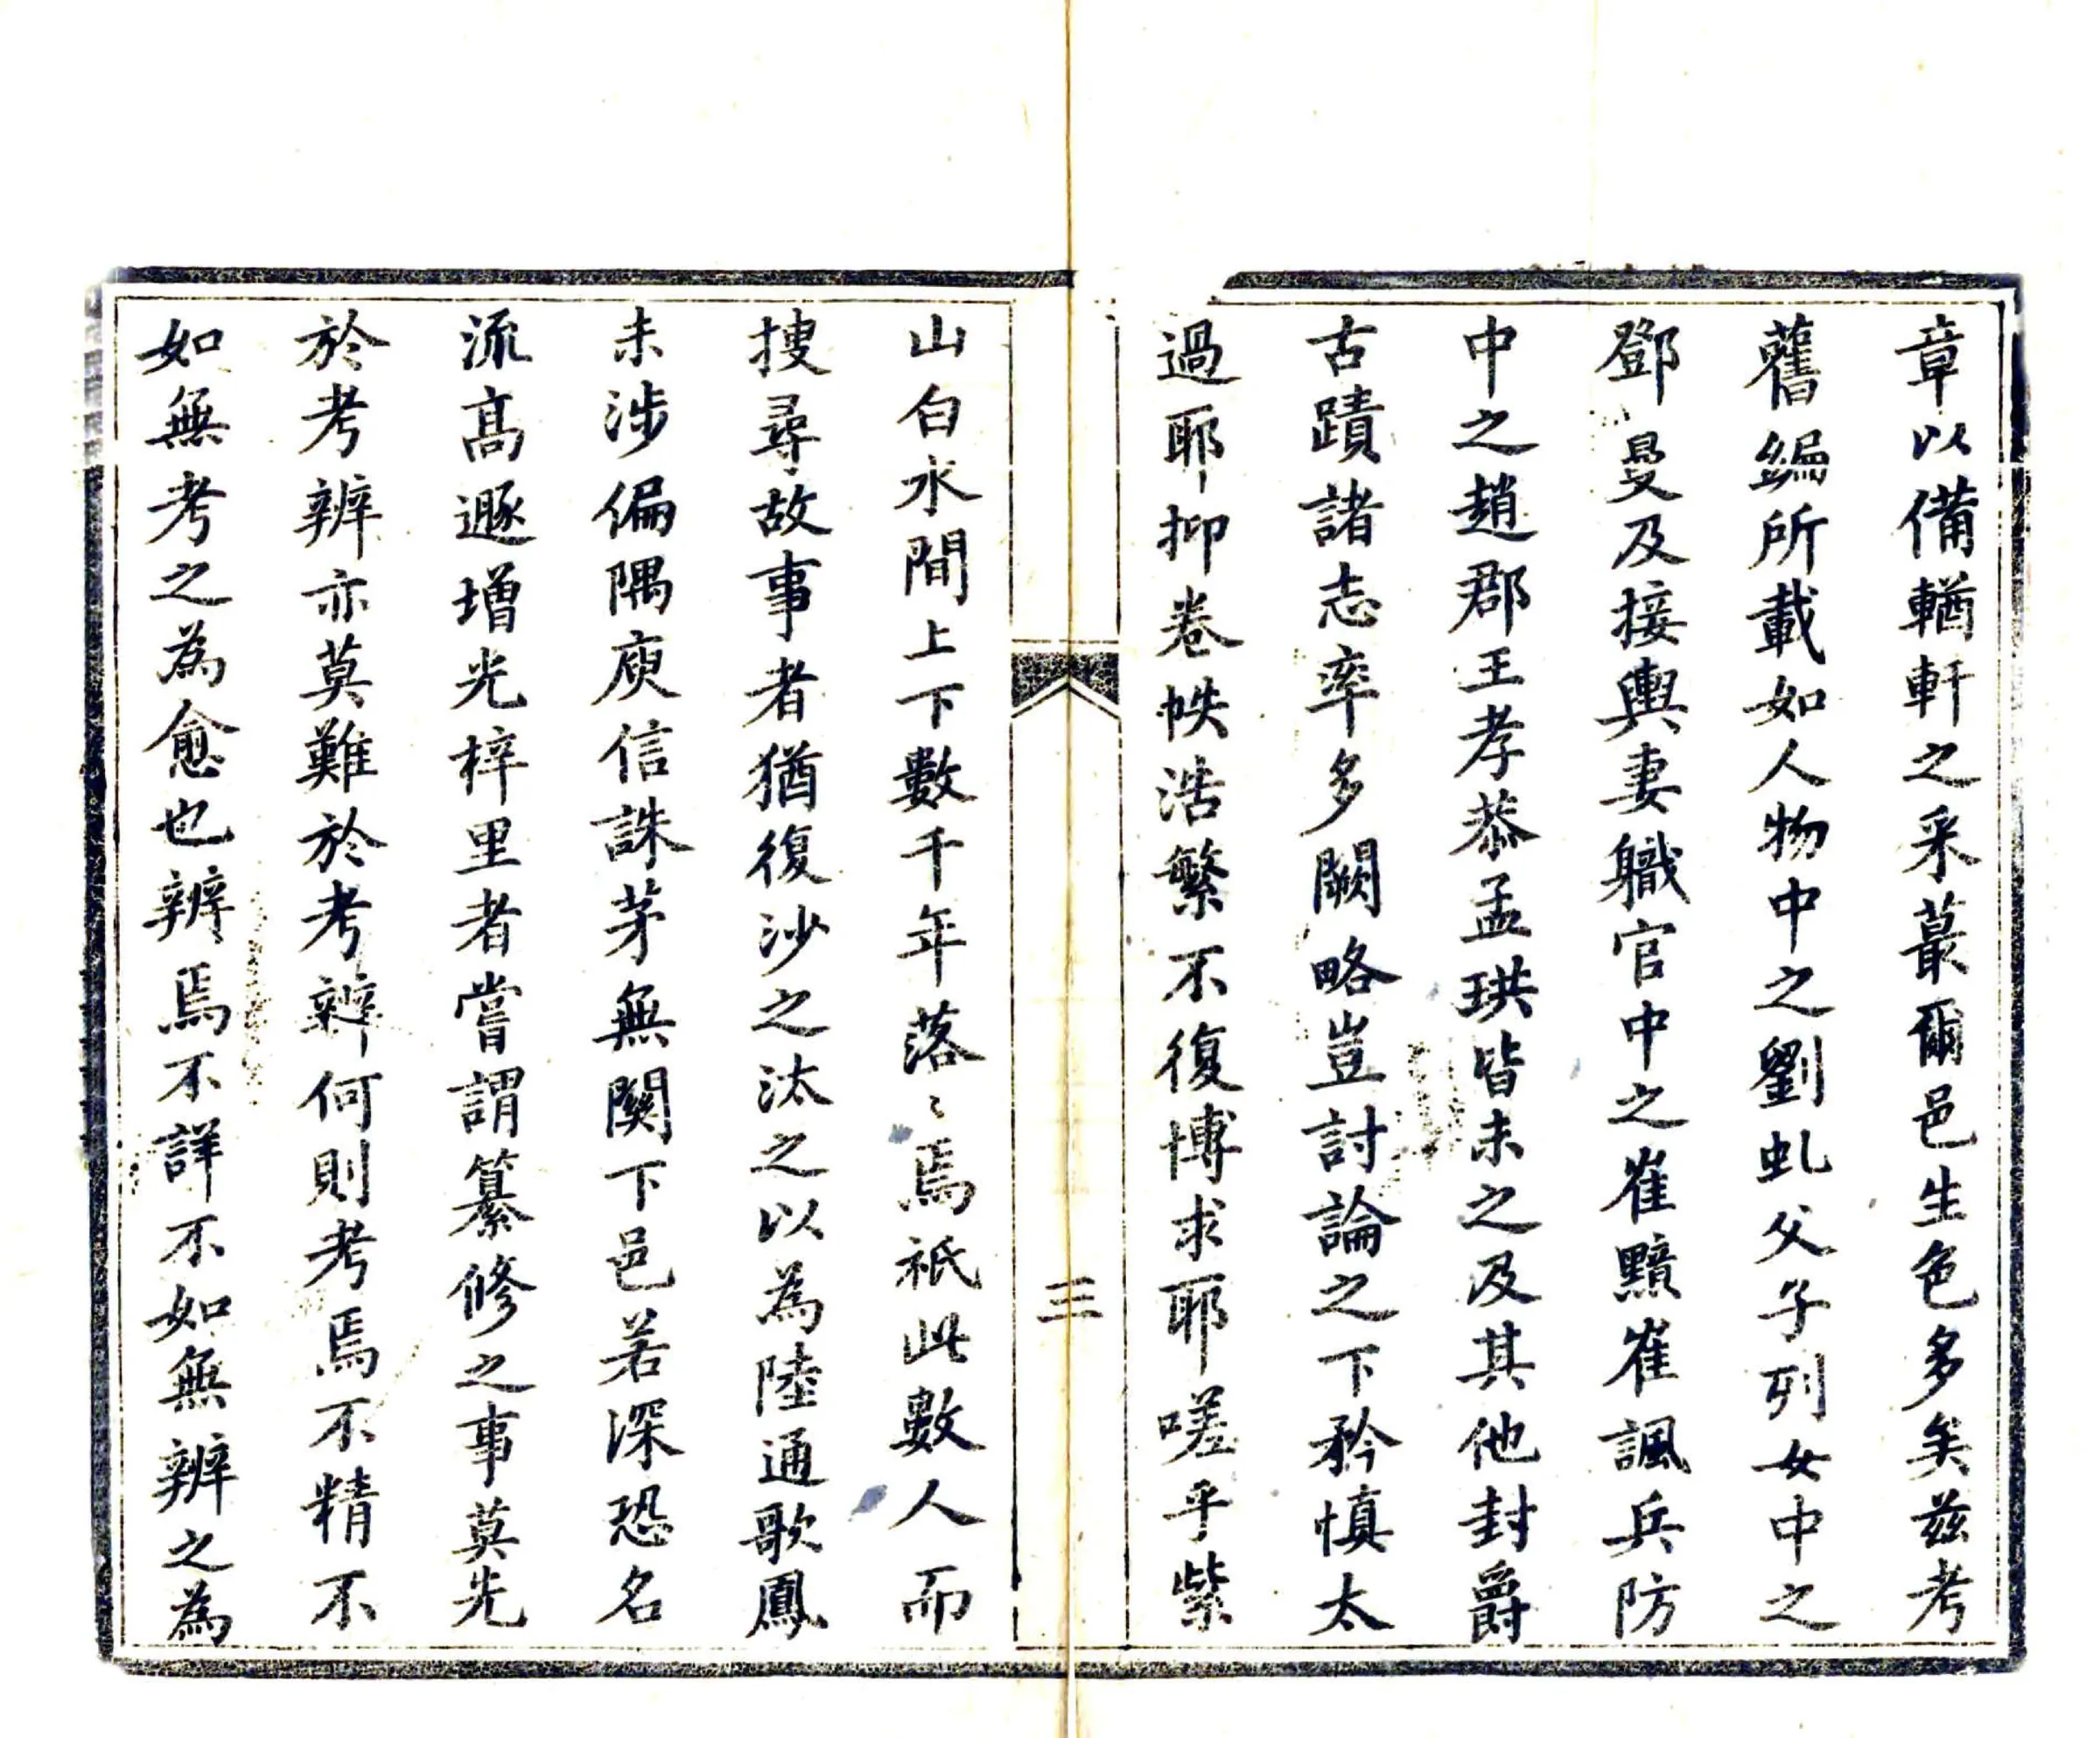 章以備輶軒之采蕞爾邑生色多矣兹考
舊編所載如人物中之劉虬父子列女中之
鄧曼及接輿妻職官中之崔黯崔諷兵防
中之趙郡王孝恭孟珙皆未之及其他封爵
古蹟諸志率多闕略豈討論之下矜慎太
過耶抑卷帙浩繁不復博求耶嗟乎紫
三
山白水間上下數千年落〻焉祇此數人而
搜尋故事者猶復沙之汰之以為陸通歌鳳
未涉偏隅庾信誅茅無關下邑若深恐名
流高遯增光梓里者嘗謂纂修之事莫先
於考辨亦莫難於考辨何則考焉不精不
如無考之為愈也辨焉不詳不如無辨之為